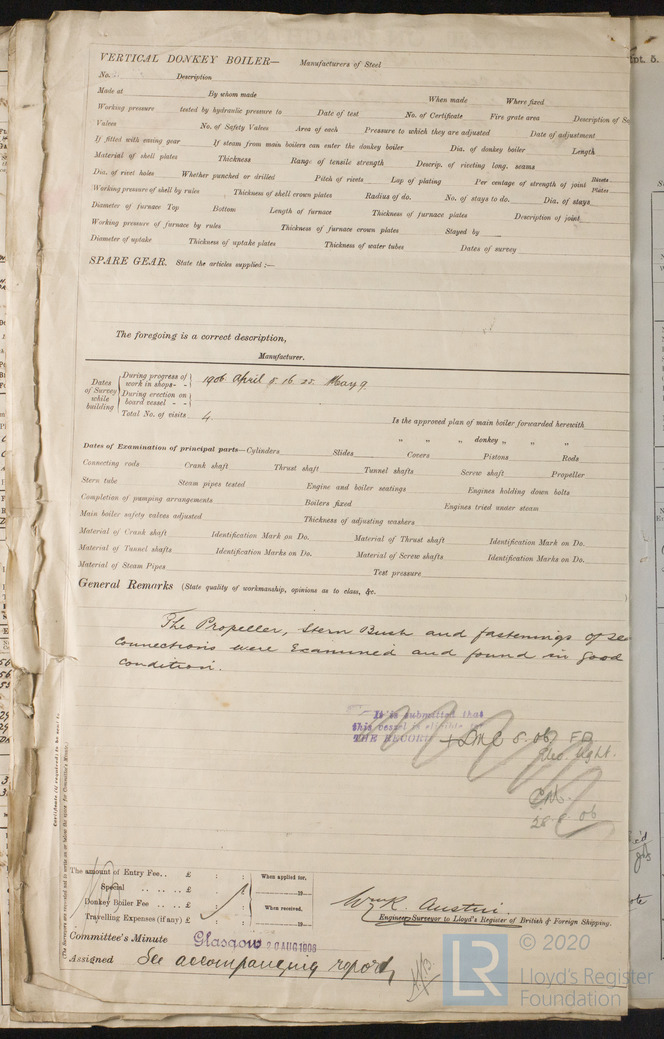 VERTICAL DONKEY BOILER— Manufacturers of Steel
No. Description
Made at By whom made When made Where fixed
Working pressure tested by hydraulic pressure to Date of test No. of Certificate Fire grate area Description of Sa
Valves No. of Safety Valves Area of each Pressure to which they are adjusted Date of adjustment
If fitted with easing gear If steam from main boilers can enter the donkey boiler Dia. of donkey boiler Length
Material of shell plates Thickness Range of tensile strength Descrip. of riveting long. seams
Dia. of rivet holes Whether punched or drilled Pitch of rivets Lap of plating Per centage of strength of joint Rivets Plates
Working pressure of shell by rules Thickness of shell crown plates Radius of do. No. of stays to do. Dia. of stays
Diameter of furnace Top Bottom Length of furnace Thickness of furnace plates Description of joint
Working pressure of furnace by rules Thickness of furnace crown plates Stayed by
Diameter of uptake Thickness of uptake plates Thickness of water tubes Dates of survey
SPARE GEAR. State the articles supplied :—
The foregoing is a correct description,
Manufacturer.
Dates of Survey while building
During progress of work in shops - - 1906 April 8. 16. 25. May 9.
During erection on board vessel - -
Total No. of visits 4.
Is the approved plan of main boiler forwarded herewith
" " " donkey " " "
Dates of Examination of principal parts—Cylinders Slides Covers Pistons Rods
Connecting rods Crank shaft Thrust shaft Tunnel shafts Screw shaft Propeller
Stern tube Steam pipes tested Engine and boiler seatings Engines holding down bolts
Completion of pumping arrangements Boilers fixed Engines tried under steam
Main boiler safety valves adjusted Thickness of adjusting washers
Material of Crank shaft Identification Mark on Do. Material of Thrust shaft Identification Mark on Do.
Material of Tunnel shafts Identification Marks on Do. Material of Screw shafts Identification Marks on Do.
Material of Steam Pipes Test pressure
General Remarks (State quality of workmanship, opinions as to class, &c.
The Propeller, Stern Bush and fastenings of se
connections were Examined and found in good
condition.
It is submitted that
this vessel is eligible
THE RECORD + LMC 5.06 FD
Elec. Light.
28 06
Certificate (if required) to be sent to
(The Surveyors are requested not to write on or below the space for Committee's Minute.)
The amount of Entry Fee . . £ : : When applied for,
Special . . . . . £ : : 19
Donkey Boiler Fee . . . . £ : : When received,
Travelling Expenses (if any) £ : : 19
Wm R. Austin.
Engineer Surveyor to Lloyd's Register of British & Foreign Shipping.
Committee's Minute Glasgow 20 AUG 1906
Assigned See accompanying report
© 2020
LR
Lloyd's Register
Foundation